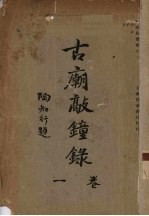 古廟敲鐘錄
陶知行題
卷一